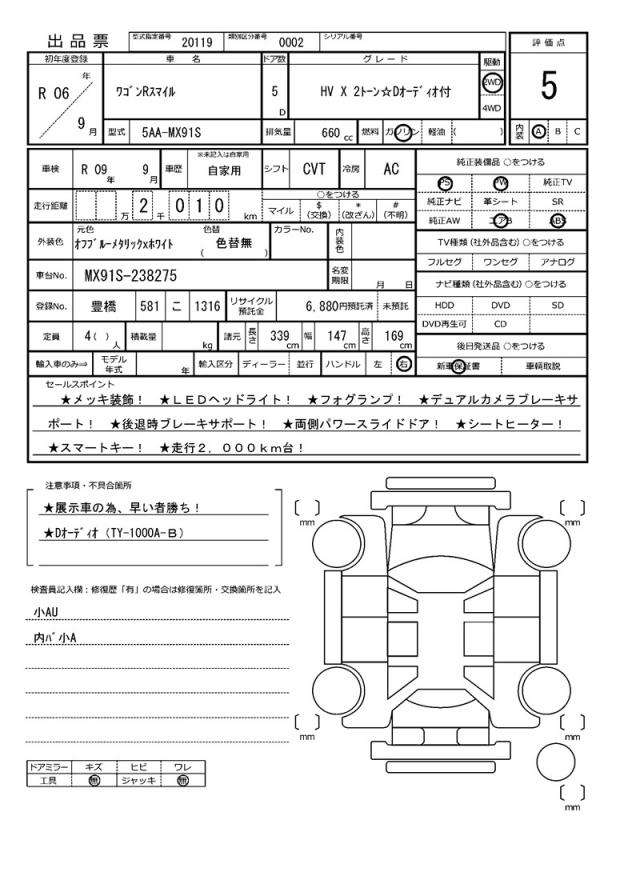 出品票 型式指定番号 20119 類別区分番号 0002 シリアル番号
初年度登録 車名 ドア数 グレード 駆動 評価点
R 06 年 9 月 ワゴンRスマイル 5 D HV X 2トーン☆Dオーディオ付 2WD 4WD 5
型式 5AA-MX91S 排気量 660 cc 燃料 ガソリン 軽油 ( ) 内装 A B C
車検 R 09 年 9 月 車歴 ※未記入は自家用 自家用 シフト CVT 冷房 AC 純正装備品 ○をつける
PS PW 純正TV
走行距離 万 2 千 0 1 0 km ○をつける マイル $ (交換) * (改ざん) # (不明) 純正ナビ 革シート SR
純正AW エアB ABS
外装色 元色 オフブルーメタリックxホワイト 色替 ( 色替無 ) カラーNo. 内装色 TV種類 (社外品含む) ○をつける
フルセグ ワンセグ アナログ
車台No. MX91S-238275 名変期限 月 日 ナビ種類 (社外品含む) ○をつける
登録No. 豊橋 581 こ 1316 リサイクル預託金 6,880円預託済 未預託 HDD DVD SD
DVD再生可 CD
定員 4( ) 人 積載量 kg 諸元 長さ 339 cm 幅 147 cm 高さ 169 cm 後日発送品 ○をつける
輸入車のみ⇒ モデル年式 年 輸入区分 ディーラー 並行 ハンドル 左 右 新車保証書 車輌取説
セールスポイント
★メッキ装飾！ ★LEDヘッドライト！ ★フォグランプ！ ★デュアルカメラブレーキサ
ポート！ ★後退時ブレーキサポート！ ★両側パワースライドドア！ ★シートヒーター！
★スマートキー！ ★走行2，000km台！
注意事項・不具合箇所
★展示車の為、早い者勝ち！
★Dオーディオ（TY-1000A-B）
検査員記入欄：修復歴「有」の場合は修復箇所・交換箇所を記入
小AU
内ﾊﾞ小A
ドアミラー キズ ヒビ ワレ
工具 無 ジャッキ 無
[ ] mm
[ ] mm
[ ] mm
[ ] mm
[ ] mm